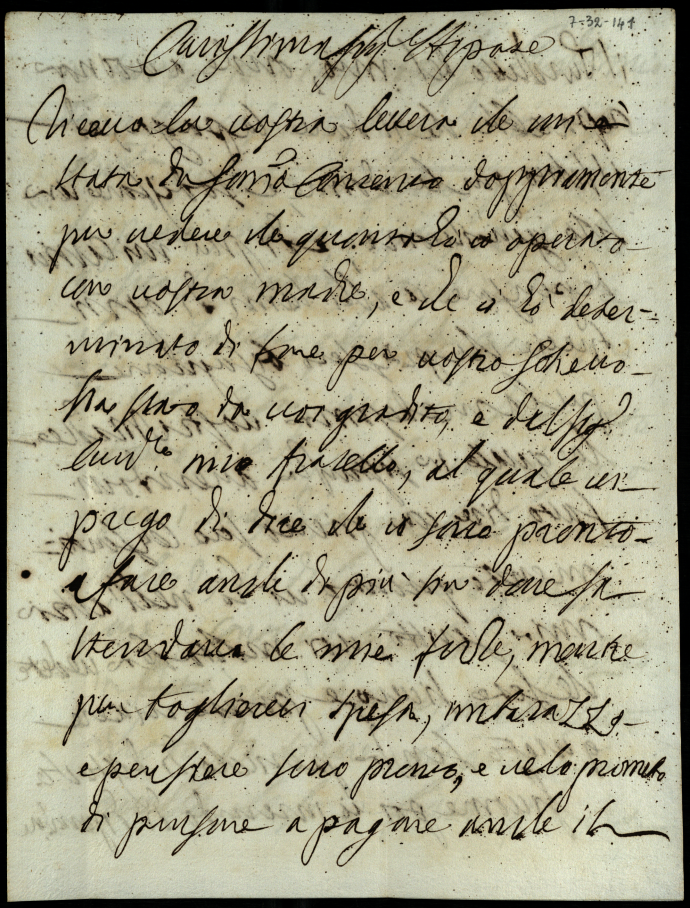 7-32-141
Carissima sig.ra Sposa
Ricevo la vostra lettera che mi è
stata di som.o Contento doppiamente
per vedere che quanto hò io operato
con vostra madre, e che io hò deter=
minato di fare per vostro sollievo
sia stato da voi gradito, e dal sig.r
mio fratello, al quale vi
prego di dire che io sono pronto
a fare anche di più sin dove si
stenderanno le mie forze, mentre
per togliervi spesa, imbarazzo
e pensiere sono pronto, e ve lo prometto
di pensare a pagare anche il